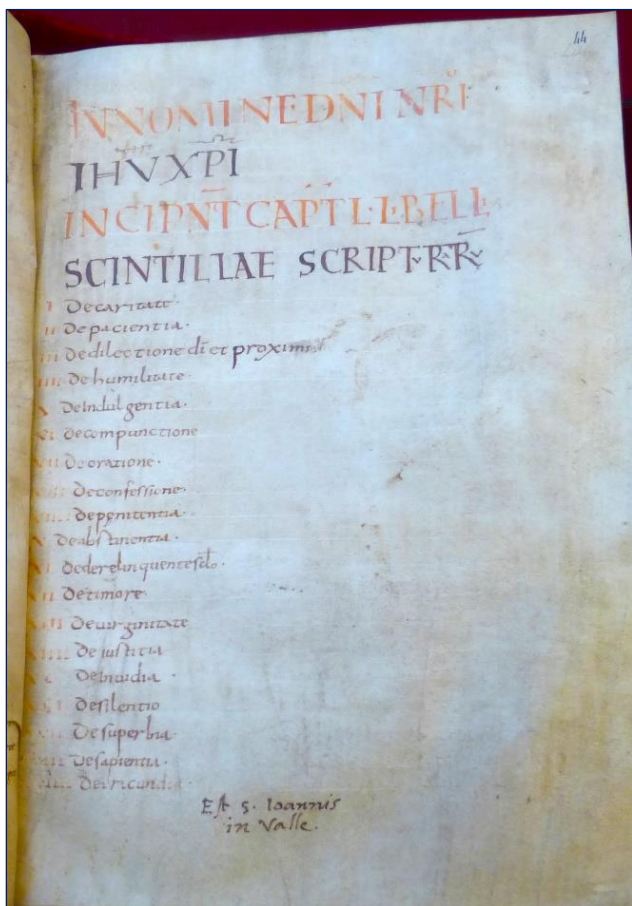 44
IN NOMINE DNI NRI
IHV XPI
INCIPNT CAPTL LIBELL
SCINTILLAE SCRIPT
I De caritate.
II De pacientia.
III De dilectione di et proximi
IIII De humilitate.
V De Indulgentia.
VI De compunctione
VII De oratione.
VIII De confessione.
VIIII De penitentia.
X De abstinentia.
XI De derelinquente
XII De timore.
XIII De uirginitate
XIIII De iusticia
XV De Inuidia.
XVI De silentio
XVII De superbia.
XVIII De sapientia.
De iracundia
Est S. Ioannis
in Valle.